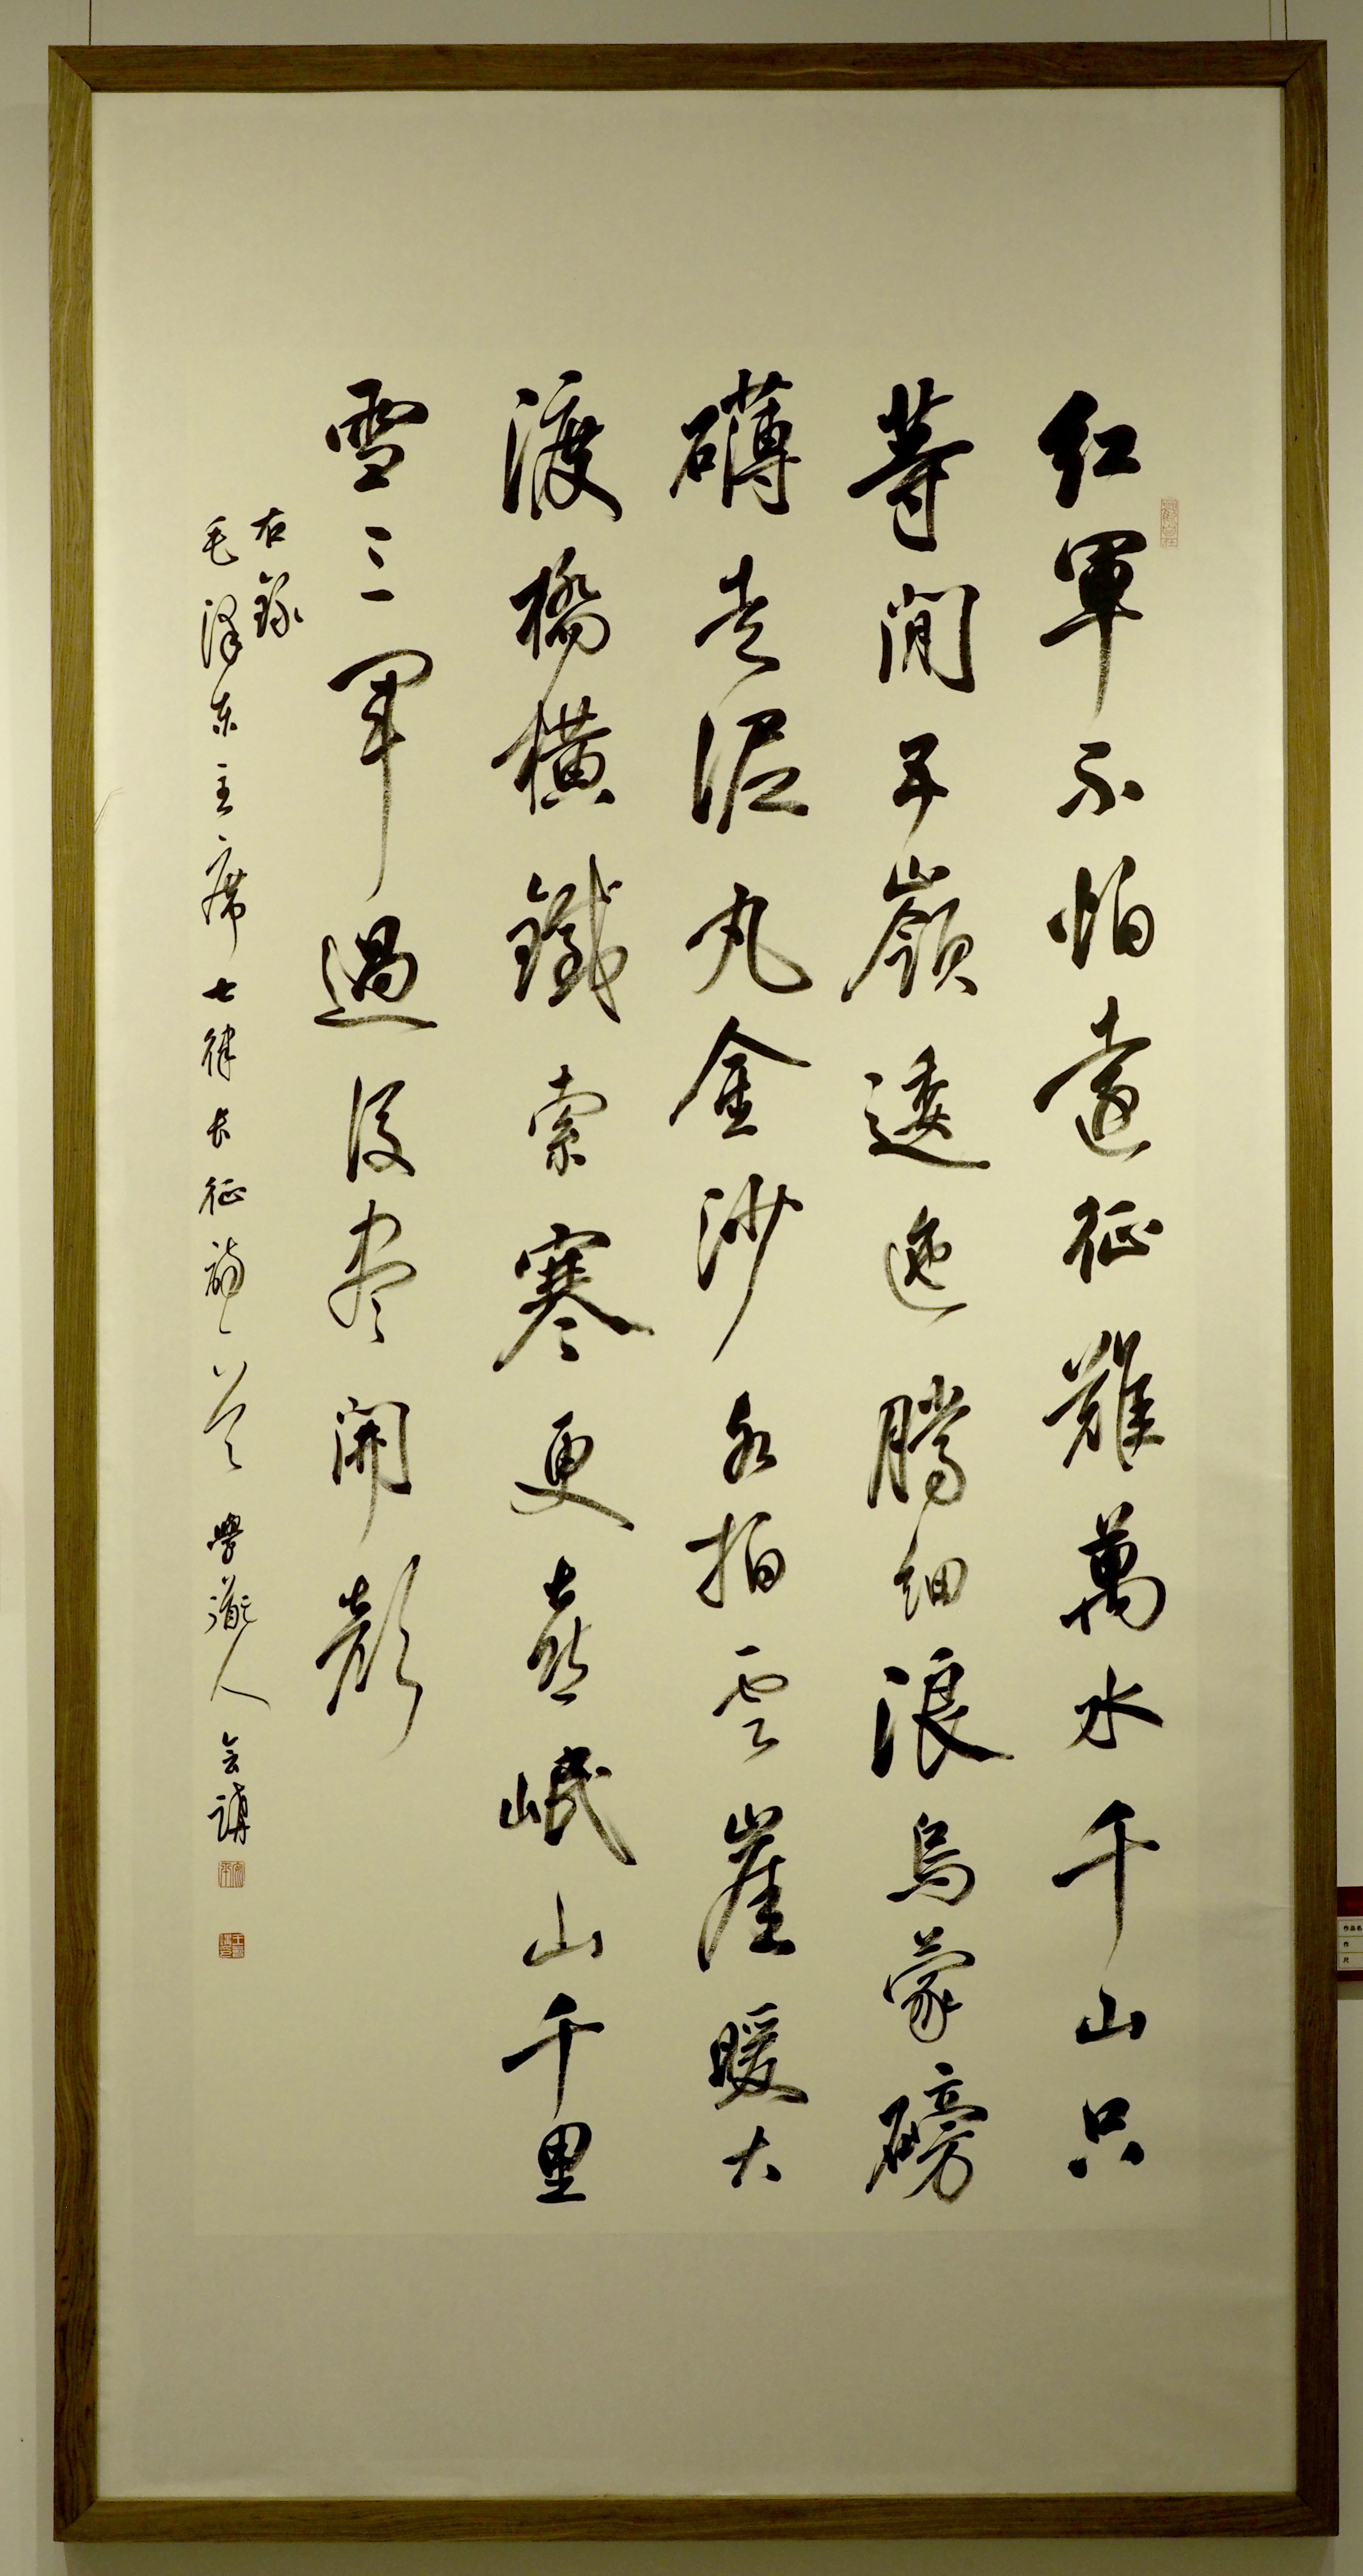 红軍不怕遠征難萬水千山只
等閒五嶺逶迤騰细浪烏蒙磅
礴走泥丸金沙水拍雲崖暖大
渡橋横鐵索寒更喜岷山千里
雪三軍過後盡開顔
右録
毛澤東主席七律长征詩一首 學道人
作品名
作
尺